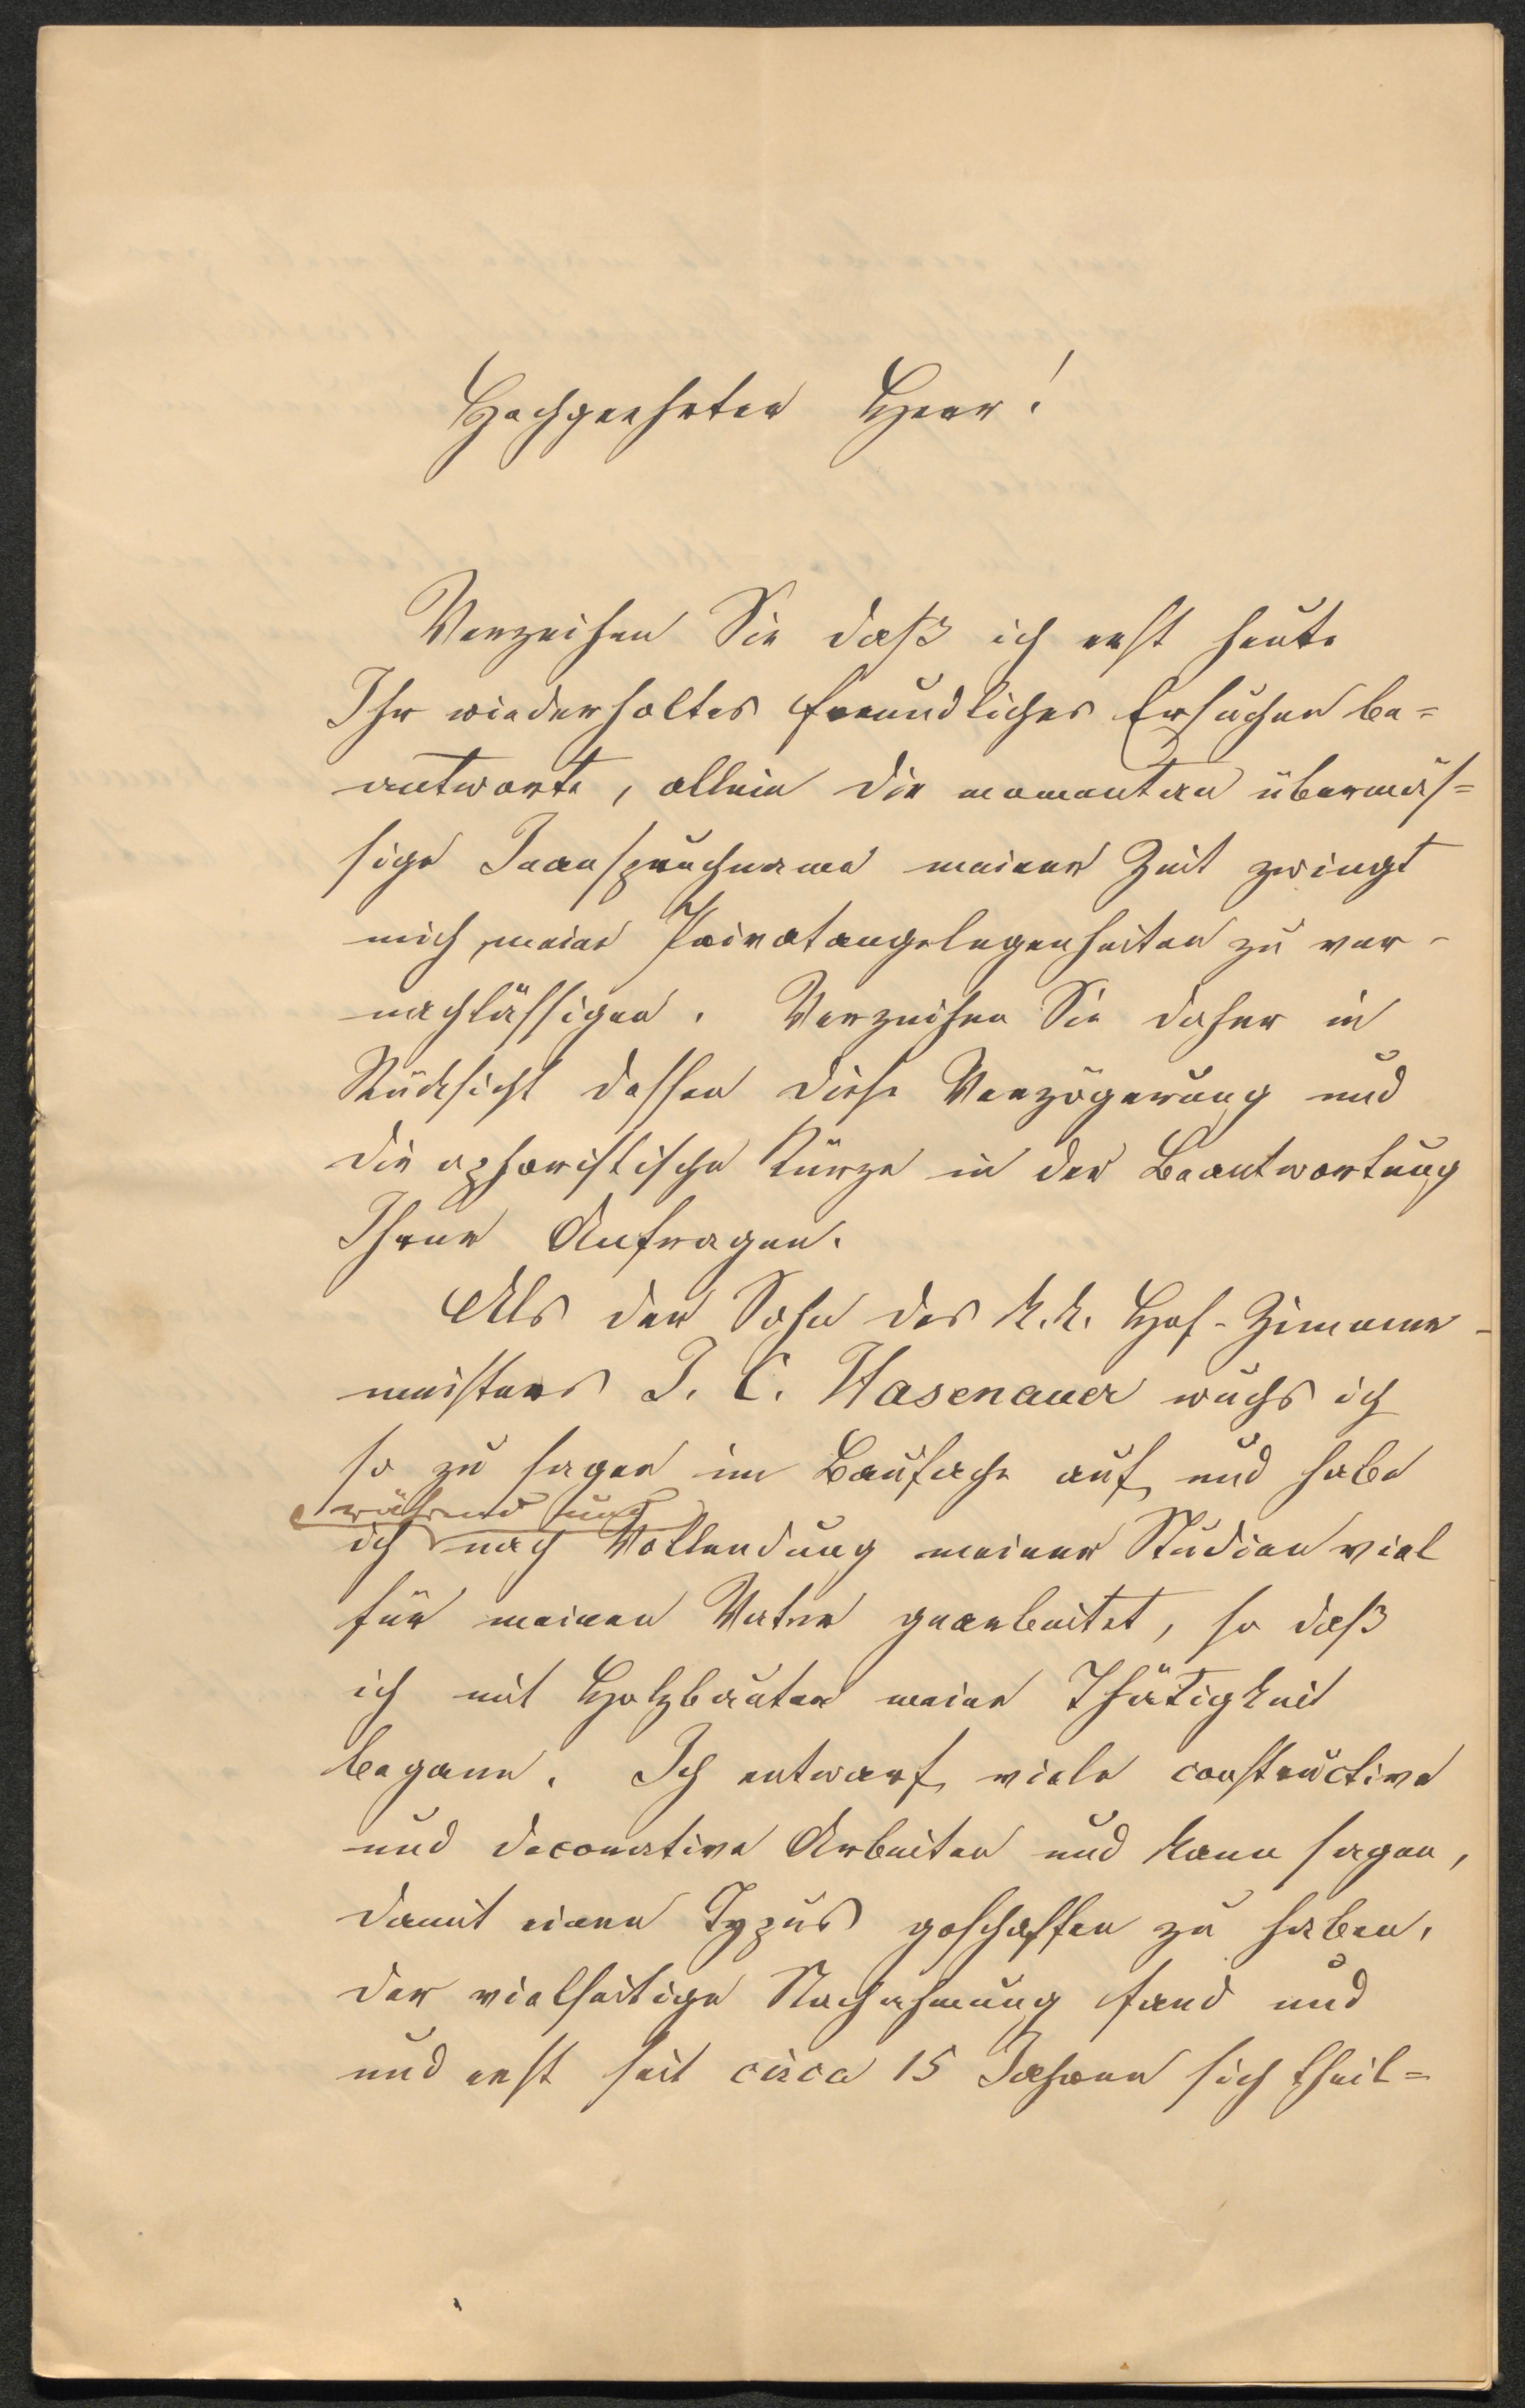 Hochgeehrter Herr!
Verzeihen Sie daß ich erst heute
Ihr wiederholtes freundliches Ersuchen be=
antworte, allein die momentan übermäs=
sige Inanspruchname meiner Zeit zwingt
mich, meine Privatangelegenheiten zu ver-
nachlässigen. Verzeihen Sie daher in
Rücksicht dessen diese Verzögerung und
die aphoristische Kürze in der Beantwortung
Ihrer Anfragen.
Als der Sohn des k.k. Hof-Zimmer-
meisters J. C. Hasenauer wuchs ich
so zu sagen im Baufache auf und habe
während und
ich nach Vollendung meiner Studien viel
für meinen Vater gearbeitet, so daß
ich mit Holzbauten meine Thätigkeit
begann. Ich entwarf viele constructive
und decorative Arbeiten und kann sagen,
damit einen Typus geschaffen zu haben,
der vielseitige Nachahmung fand und
und erst seit circa 15 Jahren sich theil=